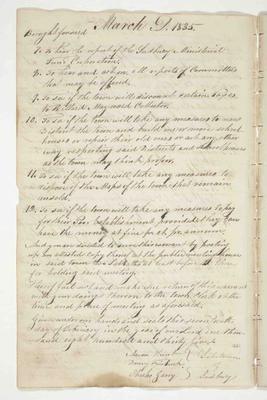 March 2. 1835.
Brought forward
7. To hear the report of the Sudbury Ministerial
Fund Corporation.
8. To hear and act on all reports of Committees
that may be offered.
9. To see if the town will discount certain taxes
to Maynard Collector.
10. To see if the town will take any measures to new
District the town and build one or more school
houses or repair their old ones or act any other
way respecting said Districts and School houses
as the town may think proper.
11. To see if the town will take any measures to
dispose of the Maps of the town that remain
unsold.
12. To see if the town will take any measures to pay
for their Poor Establishment provided they can
have the money at five pr ct. pr. annum.
And you are directed to serve this warrant by posting
up an attested copy thereof at the public meeting house
in said town days at least before the time
for holding said meeting.
Hereof fail not and make due return of this warrant
with your doings thereon to the town Clerk at the
time and place of meeting as aforesaid.
Given under our hands and seals this seventeenth
day of February in the year of our Lord one thou-
sand eight hundred and thirty five.
Selectmen
of
Sudbury